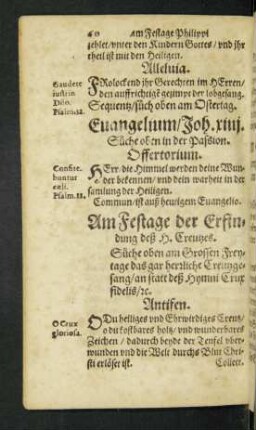 40 Am Festage Philippi
zehlet/vnter den Kindern Gottes / vnd jhr
theil ist mit den Heiligen.
Alleluia.
Gaudete
iustiin
Dño.
Psalm.32.
FRolockend jhr Gerechten im HErren/
den auffrichtigē gezimpt der lobgesang.
Sequentz/sůch oben am Ostertag.
Euangelium/Joh. xiiij.
Sůche oben in der Paßion.
Offertorium.
Confite-
buntur
cœli.
Psalm.88.
HErr die Himmel werden deine Wun-
der bekennen/vnd dein warheit in der
samlung der Heiligen.
Commun/ist auß heutigem Euangelio.
Am Festage der Erfin-
dung deß H. Creutzes.
Sůche oben am Grossen Frey-
tage das gar herzliche Creutzge-
sang/an statt deß Hymni Crux
fidelis/ꝛc.
Antifen.
O Crux
gloriosa.
O Du heiliges vnd Ehrwirdiges Creutz/
o du kostbares holtz/vnd wunderbares
Zeichen / dadurch beyde der Teufel vber-
wunden vnd die Welt durchs Blut Chri-
sti erlöset ist.
Collect.